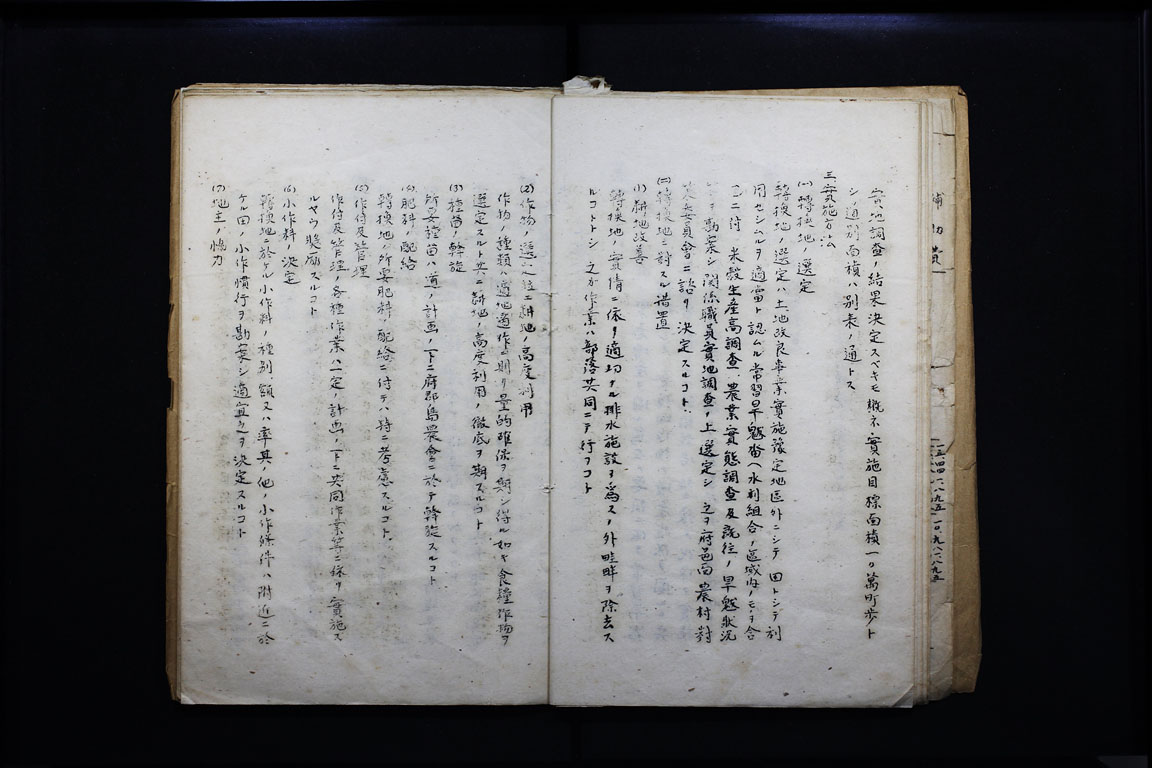 補助費
一五四四、八九五 一〇九八、八九五
實地調査ノ結果決定スベキモ概ネ實施目標面積一〇萬町歩ト
シノ道別面積ハ別表ノ通トス
三、實施方法
(一)轉換地ノ選定
轉換地ノ選定ハ土地改良事業實施豫定地區外ニシテ田トシテ利
用セシムルヲ適當ト認ムル常習旱魃畓(水利組合ノ區域内ノモノヲ合
ム)ニ付米穀生産高調査、農業實態調査及既往ノ旱魃狀況
等ヲ勘案シ關係職員實地調査ノ上選定シ之ヲ府邑面農村對
策委員會ニ諮リ決定スルコト
(二)轉換地ニ對スル措置
(1)耕地改善
轉換地ノ實情ニ依リ適切ナル排水施設ヲ爲スノ外畦畔ヲ除去ス
ルコトトシ之ガ作業ハ部落共同ニテ行フコト
(2)作物ノ選定竝ニ耕地ノ高度利用
作物ノ種類ハ適地適作ニ則リ量的確保ヲ期シ得ル如キ食糧作物ヲ
選定スルト共ニ耕地ノ高度利用ノ徹底ヲ期スルコト
(3)種苗ノ斡旋
所要種苗ハ道ノ計画ノ下ニ府郡島農會ニ於テ斡旋スルコト
(4)肥料ノ配給
轉換地ノ所要肥料ノ配給ニ付テハ特ニ考慮スルコト
(5)作付及管理
作付及管理ノ各種作業ハ一定ノ計画ノ下ニ共同作業等ニ依リ實施ス
ルヤウ奬勵スルコト
(6)小作料ノ決定
轉換地ニ於ケル小作料ノ種別、額又ハ率其ノ他ノ小作條件ハ附近ニ於
ケル田ノ小作慣行ヲ勘案シ適宜之ヲ決定スルコト
(7)地主ノ協力